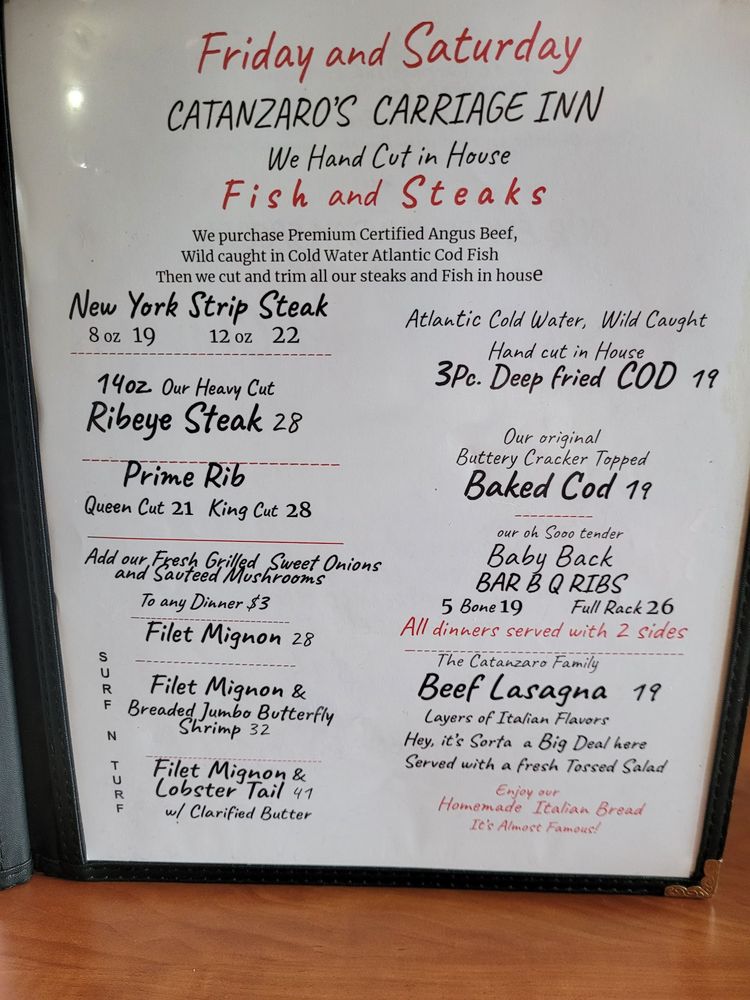 Friday and Saturday
CATANZARO'S CARRIAGE INN
We Hand Cut in House
Fish and Steaks
We purchase Premium Certified Angus Beef,
Wild caught in Cold Water Atlantic Cod Fish
Then we cut and trim all our steaks and Fish in house
New York Strip Steak
8 oz 19 12 oz 22
14oz. Our Heavy Cut
Ribeye Steak 28
Prime Rib
Queen Cut 21 King Cut 28
Add our Fresh Grilled Sweet Onions
and Sauteed Mushrooms
To any Dinner $3
Filet Mignon 28
SURF N TURF
Filet Mignon &
Breaded Jumbo Butterfly
Shrimp 32
Filet Mignon &
Lobster Tail 41
w/ Clarified Butter
Atlantic Cold Water, Wild Caught
Hand cut in House
3Pc. Deep fried COD 19
Our original
Buttery Cracker Topped
Baked Cod 19
our oh Sooo tender
Baby Back
BAR B Q RIBS
5 Bone 19 Full Rack 26
All dinners served with 2 sides
The Catanzaro Family
Beef Lasagna 19
Layers of Italian Flavors
Hey, it's Sorta a Big Deal here
Served with a fresh Tossed Salad
Enjoy our
Homemade Italian Bread
It's Almost Famous!